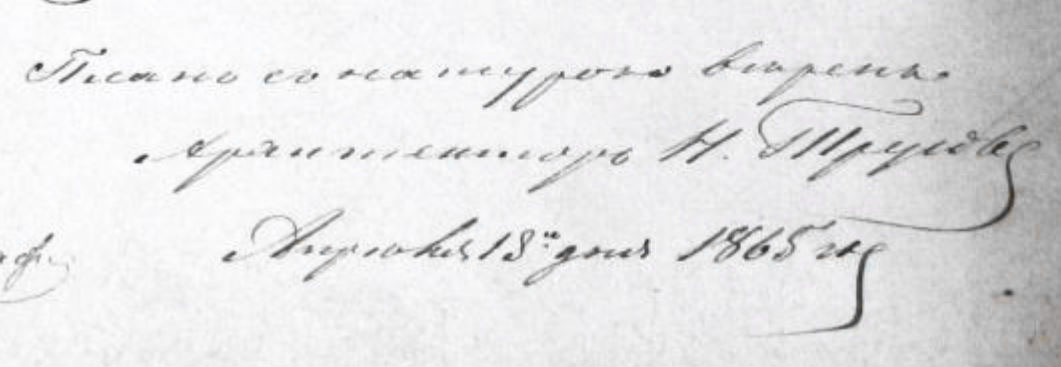 Планъ съ натурою вѣренъ.
Архитекторъ Н. Трусовъ
Апрѣля 13го дня 1865 го